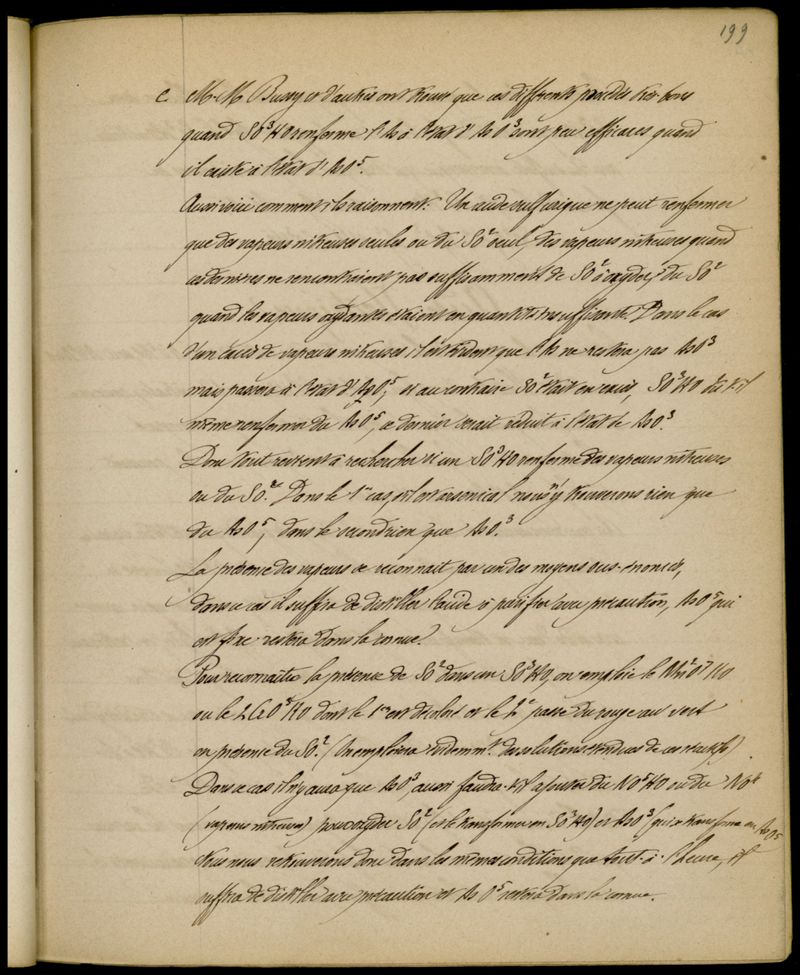 199
c. M. M. Bussy et d'autres ont trouvé que ces différents procédés très bons
quand SO³HO renferme l'As à l'état d'AsO³ sont peu efficaces quand
il existe à l'état d'AsO⁵.
Aussi voici comment ils raisonnent: Un acide sulfurique ne peut renfermer
que des vapeurs nitreuses seules ou du SO² seul, des vapeurs nitreuses quand
ces dernières ne rencontraient pas suffisamment de SO² à oxyder, du SO²
quand les vapeurs oxydantes étaient en quantité insuffisante. Dans le cas
d'un excès de vapeurs nitreuses il est évident que l'As ne restera pas AsO³
mais passera à l'état d'AsO⁵, si au contraire SO² était en excès, SO³HO dût-il
même renfermer du AsO⁵, ce dernier serait réduit à l'état de AsO³.
Donc tout revient à rechercher si un SO³HO renferme des vapeurs nitreuses
ou du SO². Dans le 1er cas, s'il est arsenical nous n'y trouverons rien que
du AsO⁵, dans le second rien que AsO³.
La présence des vapeurs se reconnait par un des moyens sus-énoncés,
dans ce cas il suffira de distiller l'acide à purifier avec précaution, AsO⁵ qui
est fixe restera dans la cornue.
Pour reconnaître la présence de SO² dans un SO³HO, on emploie le Mn²O⁷KO
ou le 2CrO³KO dont le 1er est décoloré et le 2e passe du rouge au vert
en présence du SO². (On emploiera évidemmt. des solutions étendues de ces réactifs).
Dans ce cas il n'y aura que AsO³, aussi faudra-t-il ajouter du NO⁵HO ou du NO⁴
(vapeurs nitreuses) pour oxyder SO² (et le transformer en SO³HO) et AsO³ (qui se transforme en AsO⁵
Nous nous retrouverons donc dans les mêmes conditions que tout-à-l'heure, il
suffira de distiller avec précaution et AsO⁵ restera dans la cornue.